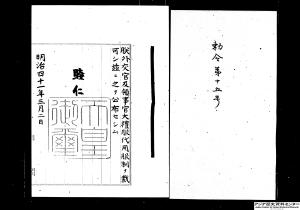 勅令第十五号
朕外交官及領事官大禮服代用服制ヲ裁
可シ茲ニ之ヲ公布セシム
睦仁
天皇御璽
明治四十一年三月二日
アジア歴史資料センター